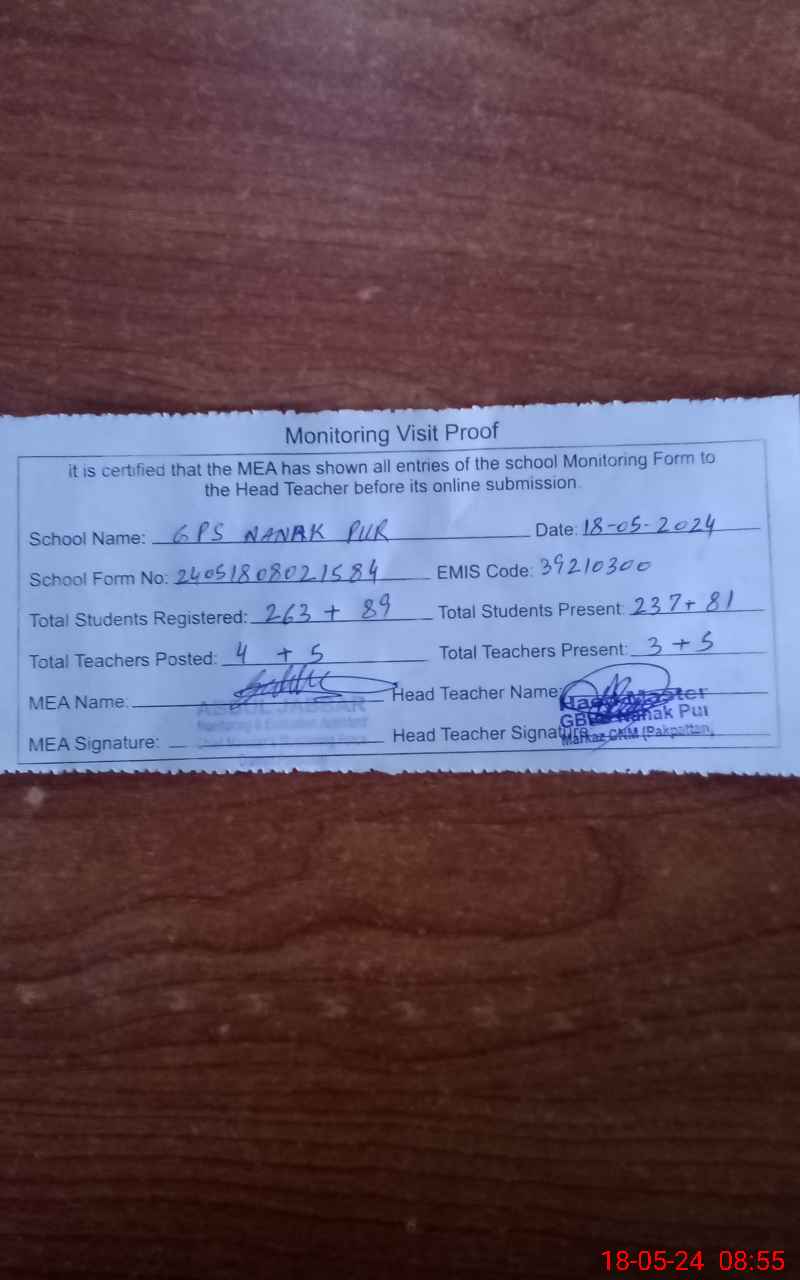 Monitoring Visit Proof
it is certified that the MEA has shown all entries of the school Monitoring Form to
the Head Teacher before its online submission.
School Name: GPS NANAK PUR Date: 18-05-2024
School Form No: 24051808021584 EMIS Code: 39210300
Total Students Registered: 263 + 89 Total Students Present: 237+ 81
Total Teachers Posted: 4 + 5 Total Teachers Present: 3 + 5
MEA Name: Head Teacher Name:
ABDUL JABBAR Head Master
Monitoring & Evaluation Assistant Nanak Pur
MEA Signature: Head Teacher Signature
Markaz CNM (Pakpattan)
18-05-24 08:55